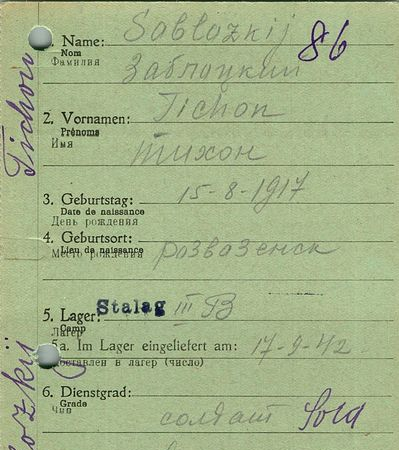 1. Name: Sablozkij 86
Nom
Фамилия Заблоцкий
2. Vornamen: Tichon
Prénoms
Имя Тихон
3. Geburtstag: 15-8-1917
Date de naissance
День рождения
4. Geburtsort:
Lieu de naissance
Место рождения розвазенск
5. Lager: Stalag III B
Camp
Лагерь
5a. Im Lager eingeliefert am: 17-9-42
Доставлен в лагерь (число)
6. Dienstgrad:
Grade
Чин солдат Sold
Tichon
ozkij